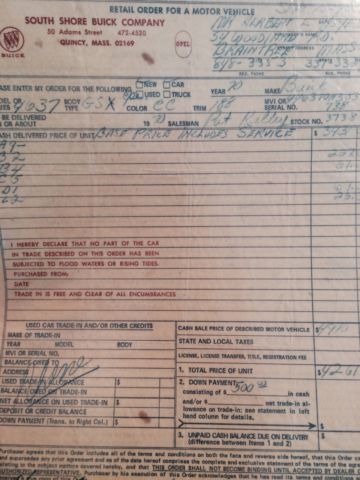 RETAIL ORDER FOR A MOTOR VEHICLE
SOUTH SHORE BUICK COMPANY
50 Adams Street 472-4520
QUINCY, MASS. 02169
BUICK
OPEL
848-3353
RES. PHONE BUS. PHONE
EASE ENTER MY ORDER FOR THE FOLLOWING NEW CAR
USED TRUCK YEAR 70 MAKE Buick
4637 BODY TYPE GSX COLOR CC TRIM 188 MVI OR SERIAL NO.
BE DELIVERED
OR ABOUT 19 70 SALESMAN Pat Kelley STOCK NO. 3738
ASH DELIVERED PRICE OF UNIT BASE PRICE INCLUDES SERVICE $
A9-
I HEREBY DECLARE THAT NO PART OF THE CAR
IN TRADE DESCRIBED ON THIS ORDER HAS BEEN
SUBJECTED TO FLOOD WATERS OR RISING TIDES.
PURCHASED FROM:
DATE
TRADE IN IS FREE AND CLEAR OF ALL ENCUMBRANCES
USED CAR TRADE-IN AND/OR OTHER CREDITS
MAKE OF TRADE-IN
YEAR MODEL BODY
MVI OR SERIAL NO.
BALANCE OWED TO
ADDRESS
USED TRADE-IN ALLOWANCE $
BALANCE OWED ON TRADE-IN $
NET ALLOWANCE ON USED TRADE-IN $
DEPOSIT OR CREDIT BALANCE
DOWN PAYMENT (Trans. to Right Col.) $
CASH SALE PRICE OF DESCRIBED MOTOR VEHICLE $
STATE AND LOCAL TAXES
LICENSE, LICENSE TRANSFER, TITLE, REGISTRATION FEE
1. TOTAL PRICE OF UNIT $4261
2. DOWN PAYMENT
consisting of $ 500 in cash
and/or $ net trade-in al-
lowance on trade-in: see statement in left
hand column for details.
3. UNPAID CASH BALANCE DUE ON DELIVERY
(difference between Items 1 and 2) $
Purchaser agrees that this Order includes all of the terms and conditions on both the face and reverse side hereof, that this
any prior agreement and as of the date hereof comprises the complete and exclusive statement of the terms of the agree
elating to the subject matters covered hereby, and that THIS ORDER SHALL NOT BECOME BINDING UNTIL ACCEPTED BY DEALER OF
AUTHORIZED REPRESENTATIVE. Purchaser by his execution of this Order acknowledges that he has read its terms and condition